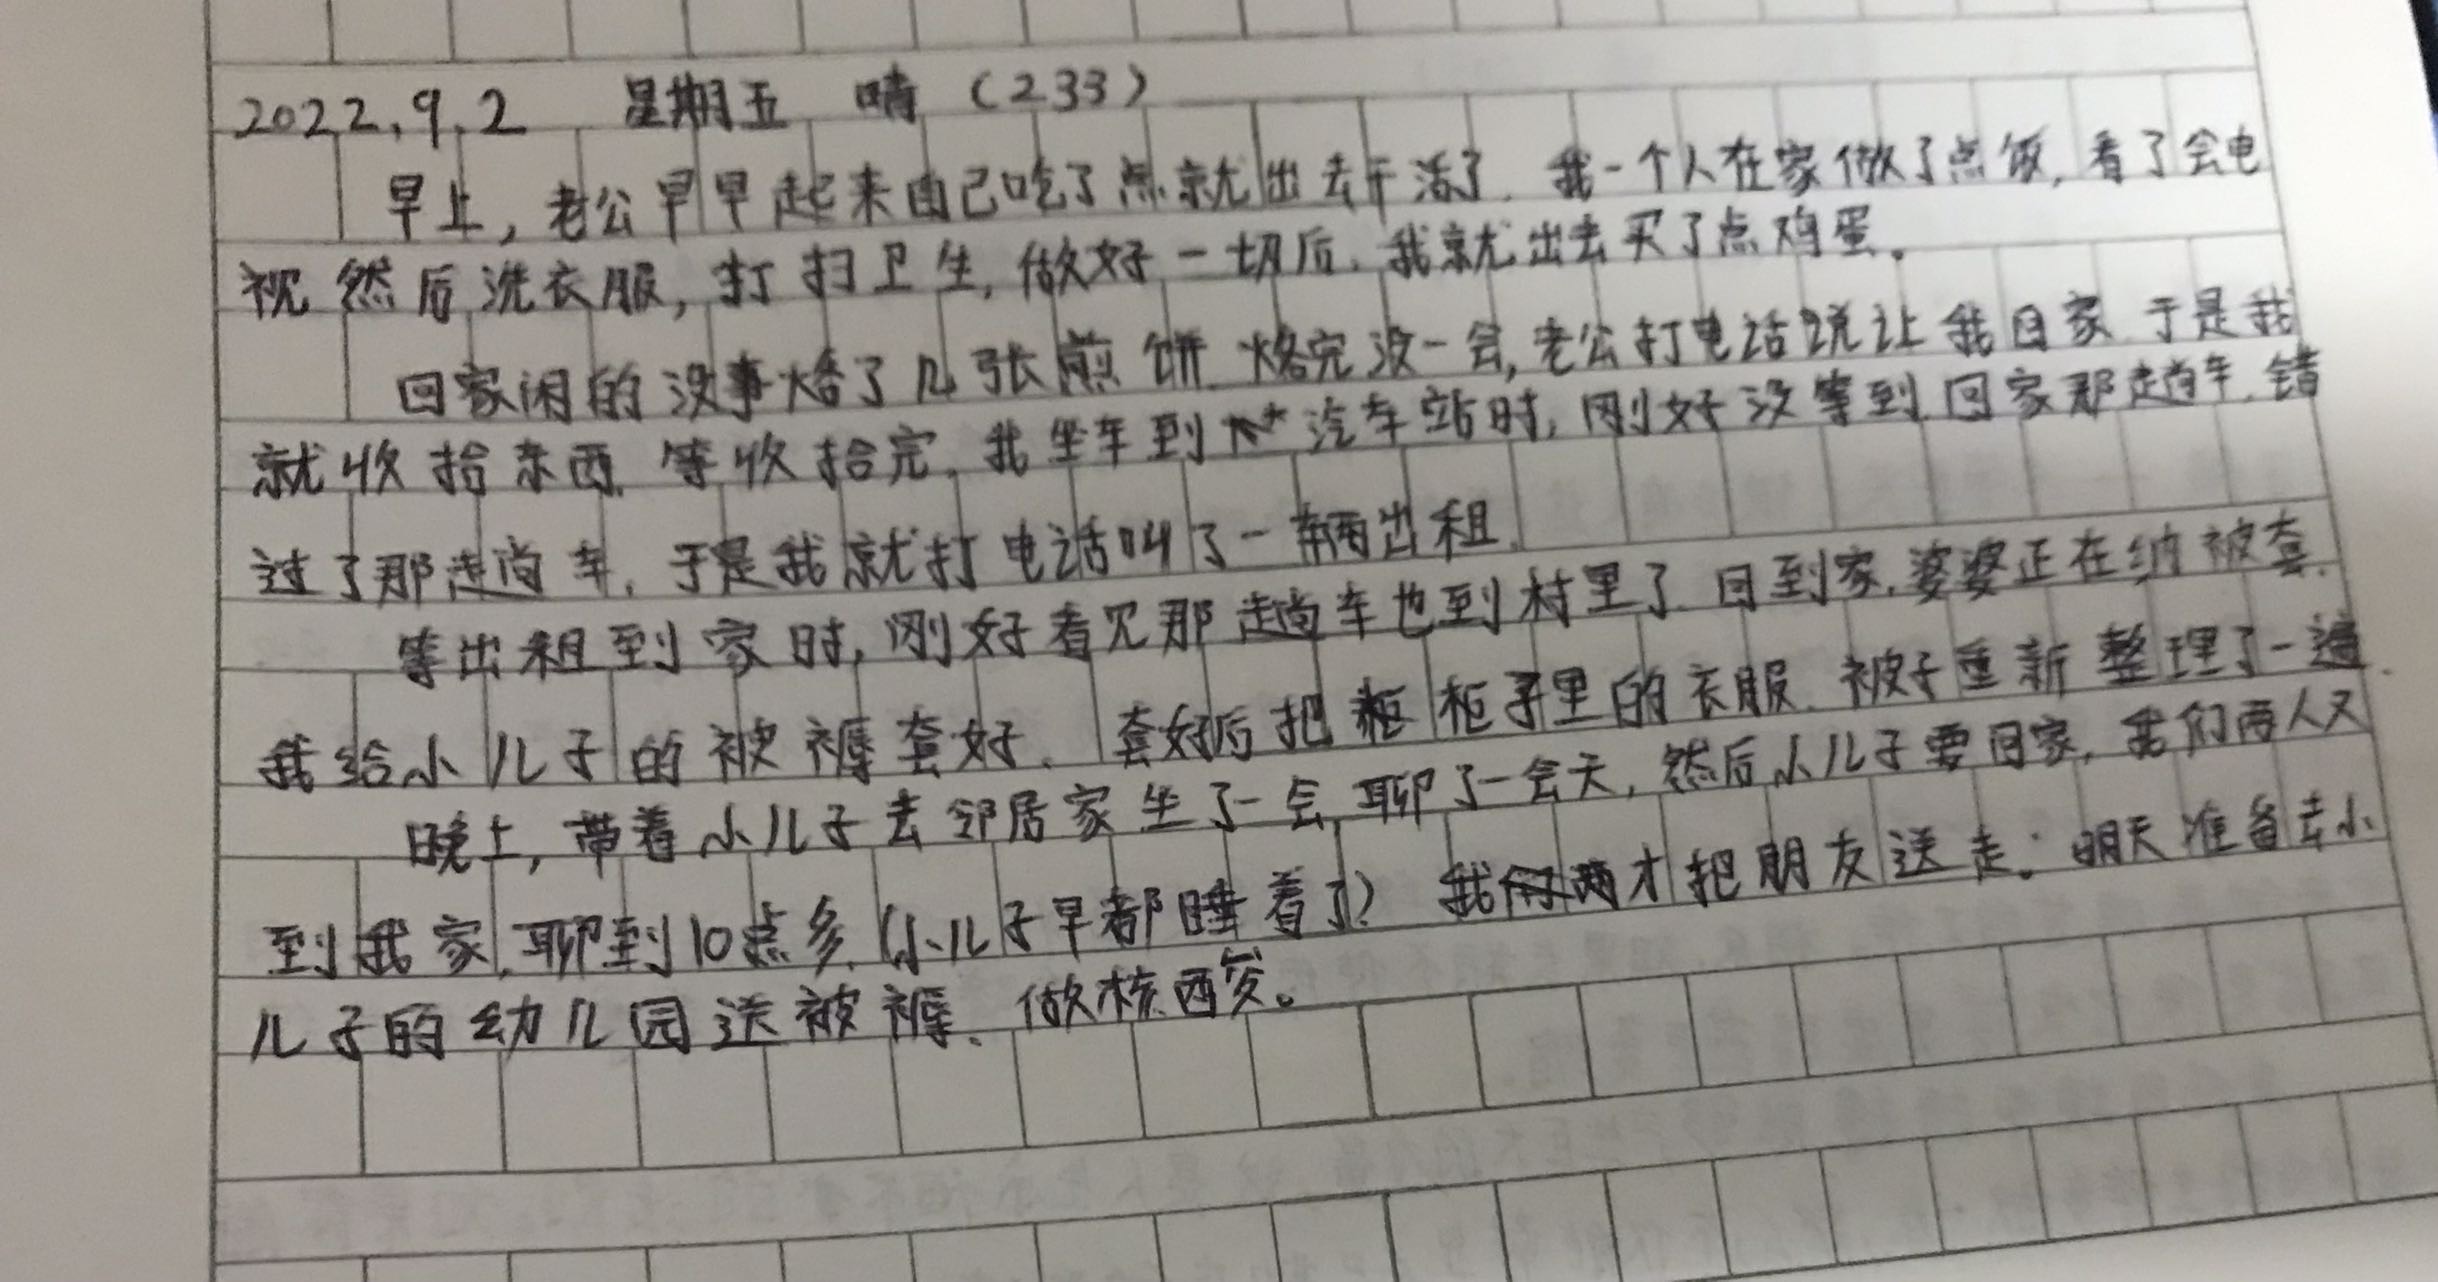 2022.9.2 星期五 晴（233）
早上，老公早早起来自己吃了点就出去干活了.我一个人在家做了点饭,看了会电
视然后洗衣服,打扫卫生,做好一切后.我就出去买了点鸡蛋。
回家闲的没事烙了几张煎饼.烙完没一会,老公打电话说让我回家.于是我
就收拾东西.等收拾完.我坐车到汽车站时,刚好没等到回家那趟车.错
过了那趟车.于是我就打电话叫了一辆出租.
等出租到家时,刚好看见那趟车也到村里了.回到家.婆婆正在纳被套.
我给小儿子的被褥套好.套好后把柜子里的衣服.被子重新整理了一遍.
晚上,带着小儿子去邻居家坐了一会,聊了一会天,然后小儿子要回家,我们两人又
到我家,聊到10点多.(小儿子早都睡着了)我才把朋友送走.明天准备去小
儿子的幼儿园送被褥、做核酸。